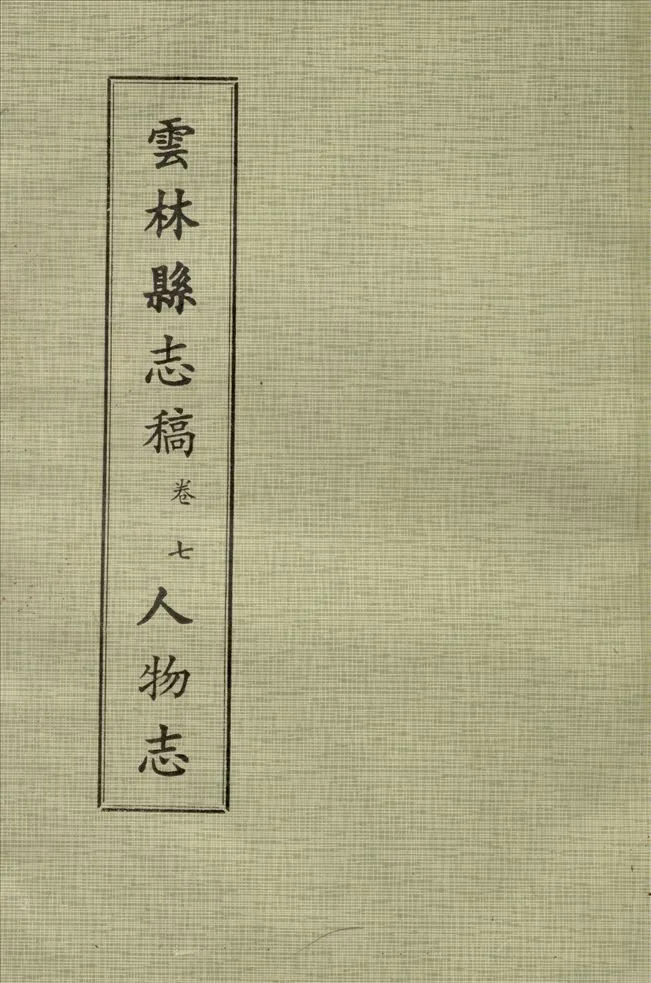 雲林縣志稿 卷七 人物志